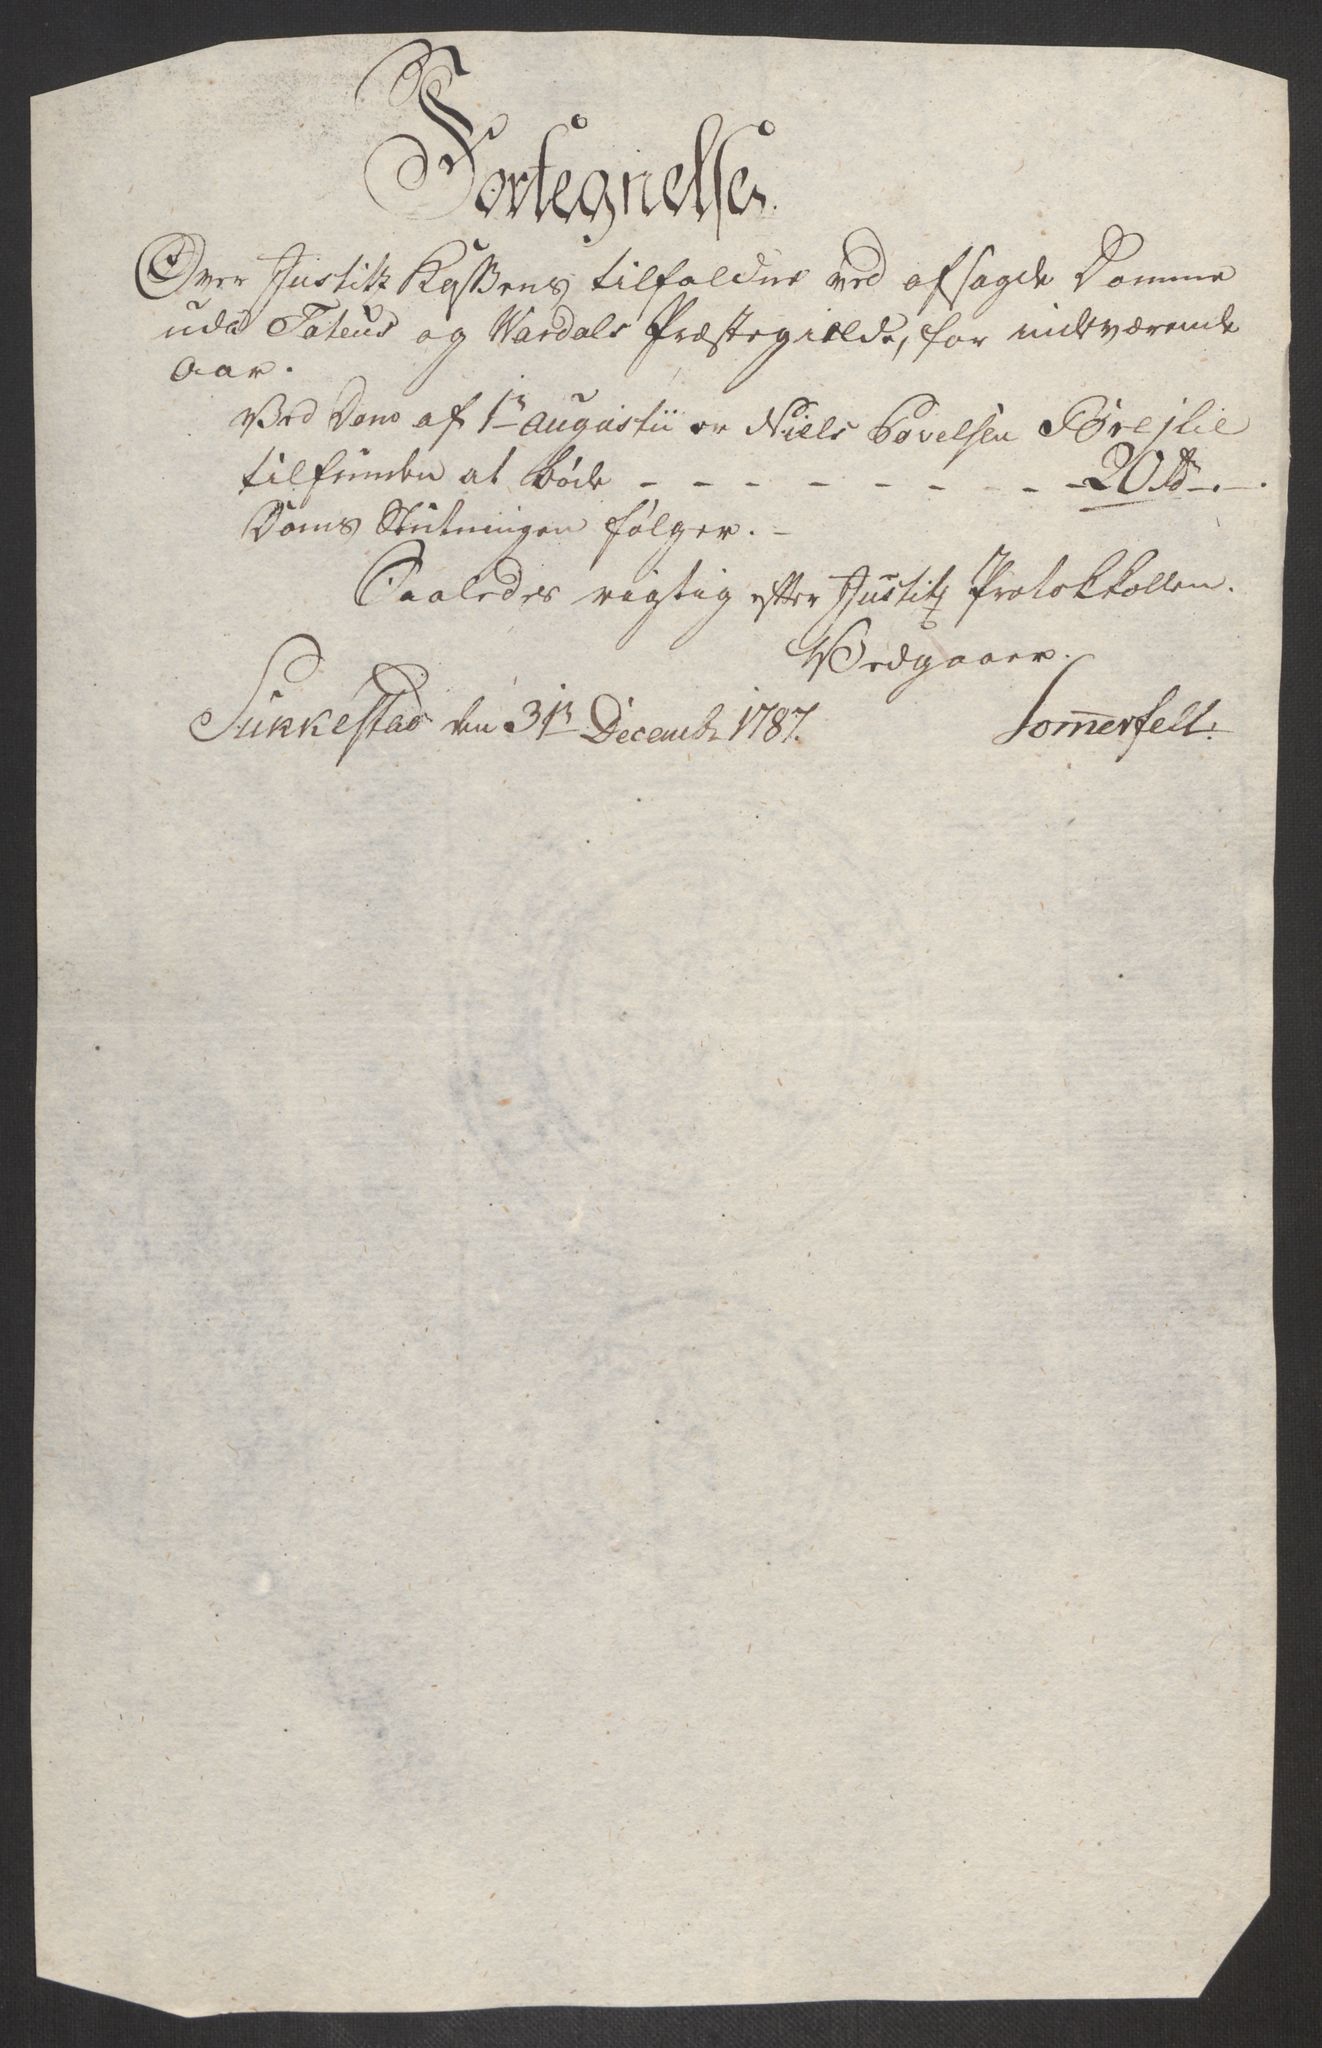 Fortegnelse.
Over Justitz Kassens tilfaldne ved afsagde Domme
udi Totens og Wardals Præstegielde, for indeværende
Aar.
Ved Dom af 1te Augustii er Niels Povelsen
tilfunden at bøde - - - - - - - - - 20 rd -.-.
Doms Slutningen følger. -
Saaledes rigtig efter Justitz Protokkollen.
Vedgaaer.
Sukkestad den 31te Decembr 1787. Somerfelt.